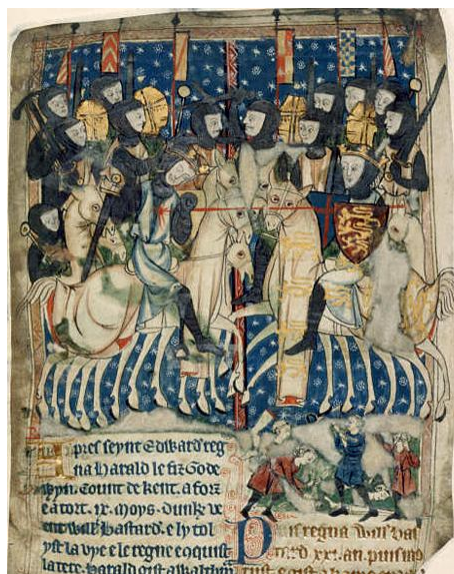 pres seynt Edward reg
na Harald le fiz Gode
wyn. Count de kent. a forz
e a tort. ix. moys. dunk ve
ent Will bastard. e ly tol
yst la vye e le regne e cnquist
la tere. Harald gist a Waltham
is regna Will bas
tard. xxi. an. puis mo